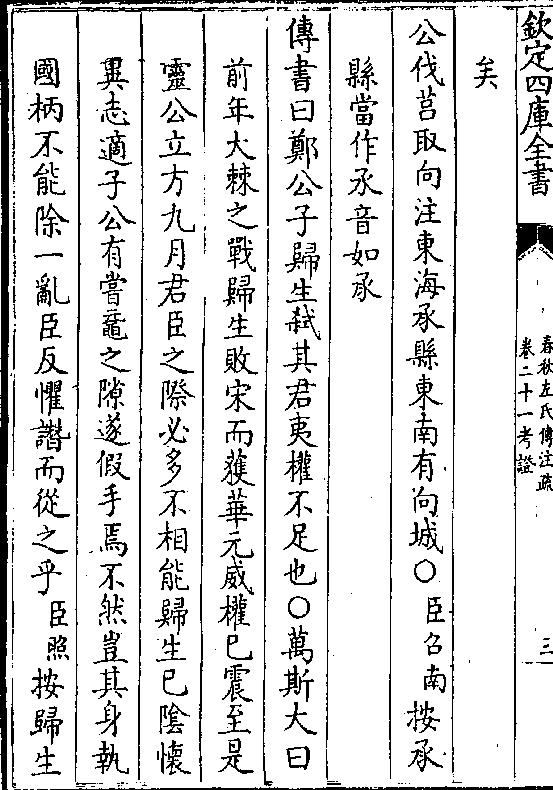 欽定四庫全書
春秋左氏傳注疏
卷二十一考證
三
矣
公伐莒取向注東海承縣東南有向城○臣召南按承
縣當作氶音如承
傳書曰鄭公子歸生弑其君夷權不足也○萬斯大曰
前年大棘之戰歸生敗宋而獲華元威權已震至是
靈公立方九月君臣之際必多不相能歸生已陰懷
異志適子公有嘗黿之隙遂假手焉不然豈其身執
國柄不能除一亂臣反懼譖而從之乎臣照按歸生